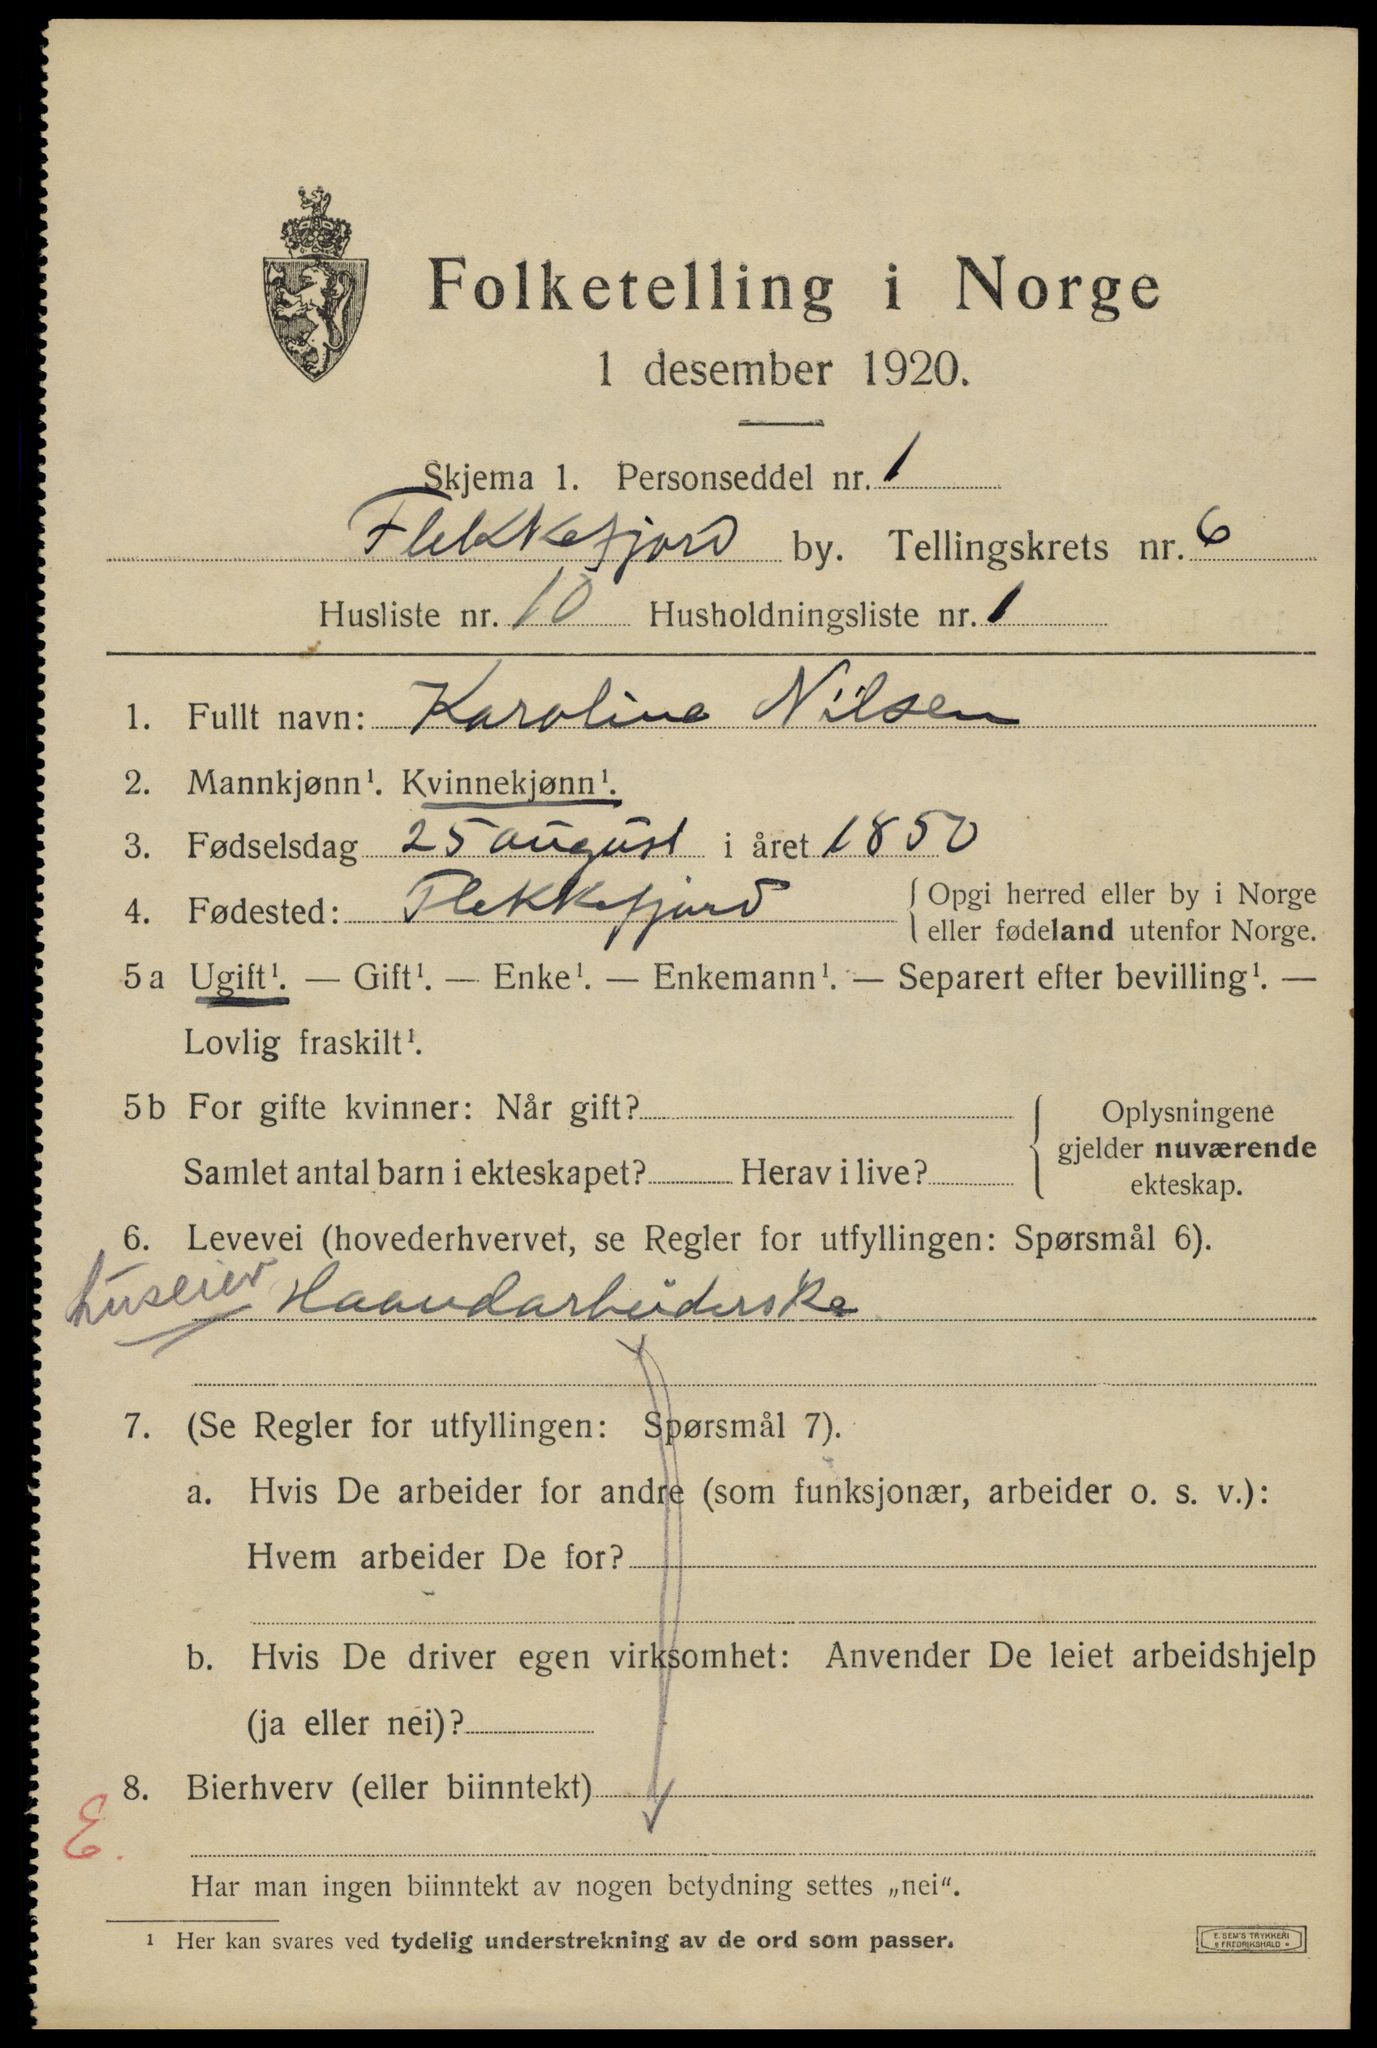 Folketelling i Norge
1 desember 1920.
Skjema 1. Personseddel nr. 1
Flekkefjord by. Tellingskrets nr. 6
Husliste nr. 10 Husholdningsliste nr. 1
1. Fullt navn: Karoline Nilsen
2. Mannkjønn¹. Kvinnekjønn¹.
3. Fødselsdag 25 august i året 1850
4. Fødested: Flekkefjord { Opgi herred eller by i Norge
eller fødeland utenfor Norge.
5 a Ugift¹. — Gift¹. — Enke¹. — Enkemann¹. — Separert efter bevilling¹. —
Lovlig fraskilt¹.
5 b For gifte kvinner: Når gift? { Oplysningene
gjelder nuværende
Samlet antal barn i ekteskapet? Herav i live? ekteskap.
6. Levevei (hovederhvervet, se Regler for utfyllingen: Spørsmål 6).
huseier Haandarbeiderske
7. (Se Regler for utfyllingen: Spørsmål 7).
a. Hvis De arbeider for andre (som funksjonær, arbeider o. s. v.):
Hvem arbeider De for?
b. Hvis De driver egen virksomhet: Anvender De leiet arbeidshjelp
(ja eller nei)?
8. Bierhverv (eller biinntekt)
E.
Har man ingen biinntekt av nogen betydning settes „nei“.
¹ Her kan svares ved tydelig understrekning av de ord som passer.
E. SEM'S TRYKKERI
FREDRIKSHALD